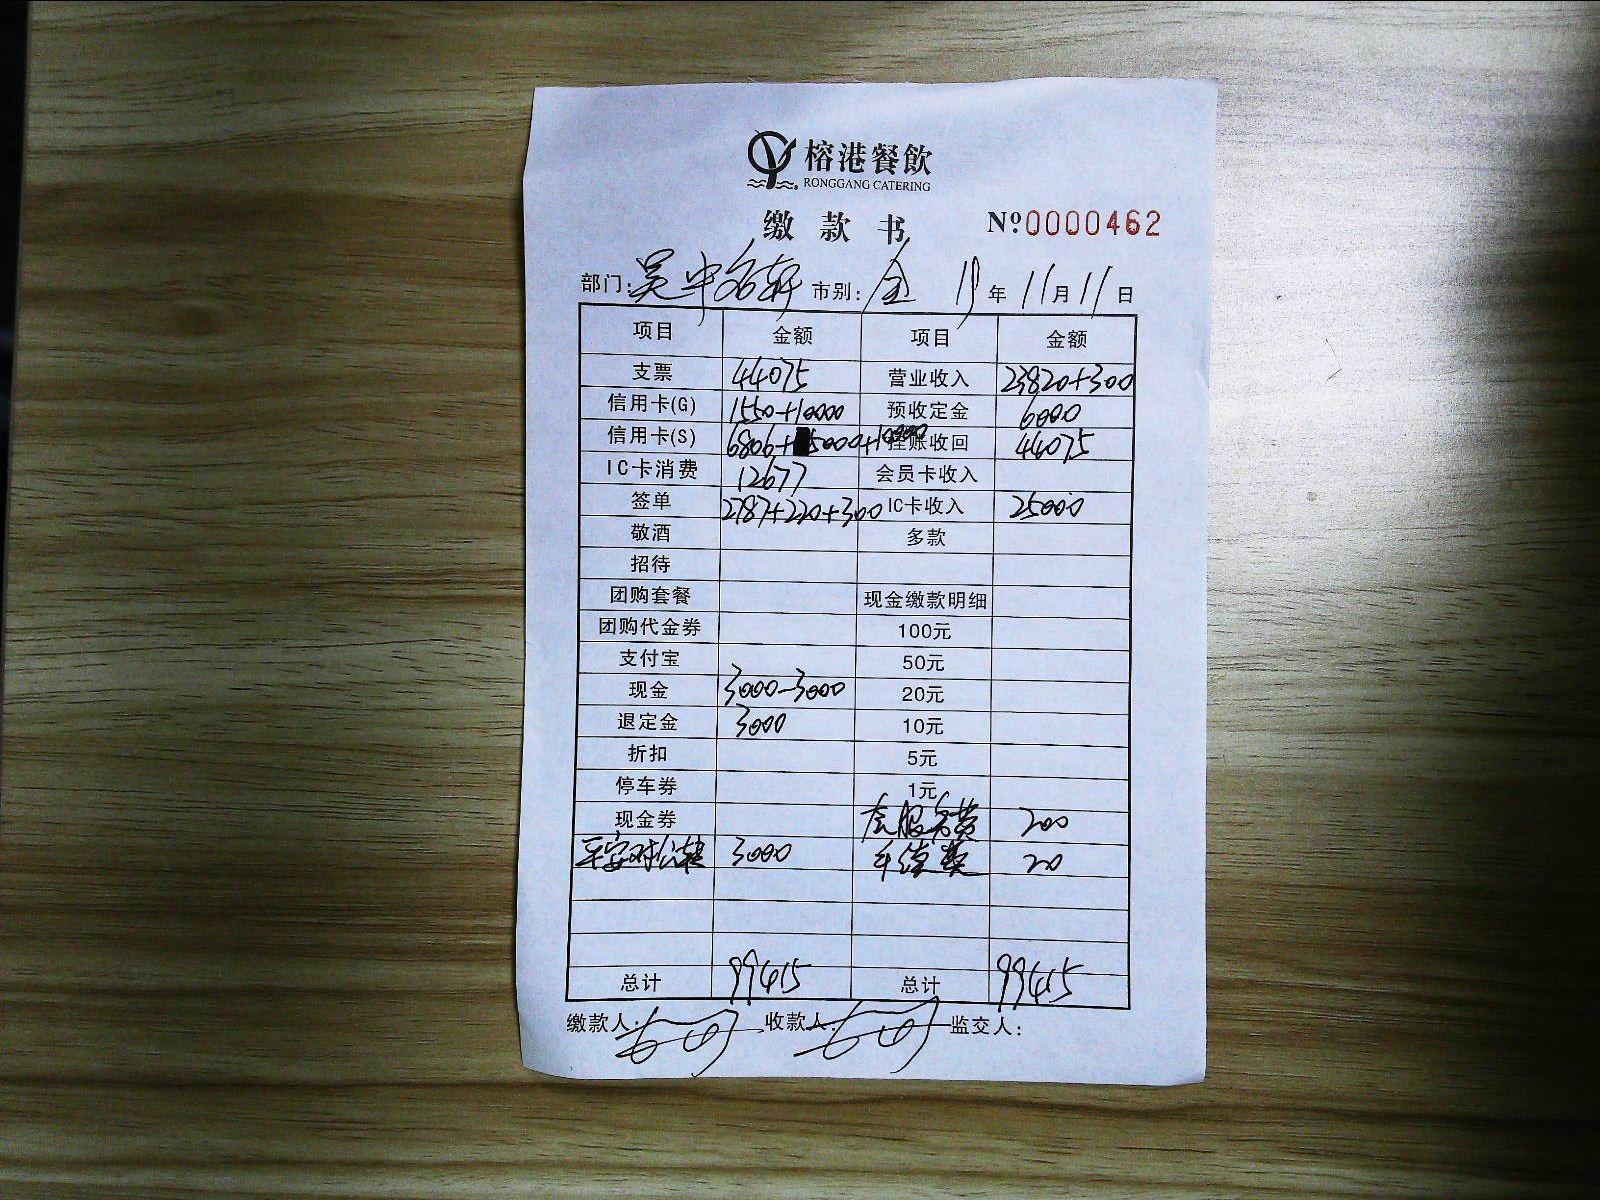 榕港餐飲
RONGGANG CATERING
缴款书 №0000462
部门: 吴中名轩 市别: 全 19年 11月 11日
项目 金额 项目 金额
支票 44075 营业收入 23820+300
信用卡(G) 1550+10000 预收定金 6000
信用卡(S) 6806+15000+10000 挂账收回 44075
IC卡消费 12677 会员卡收入
签单 2787+220+300 IC卡收入 25000
敬酒 多款
招待
团购套餐 现金缴款明细
团购代金券 100元
支付宝 50元
现金 3000-3000 20元
退定金 3000 10元
折扣 5元
停车券 1元
现金券 服务费 200
平安对公转 3000 手续费 20
总计 99415 总计 99415
缴款人: 收款人: 监交人: